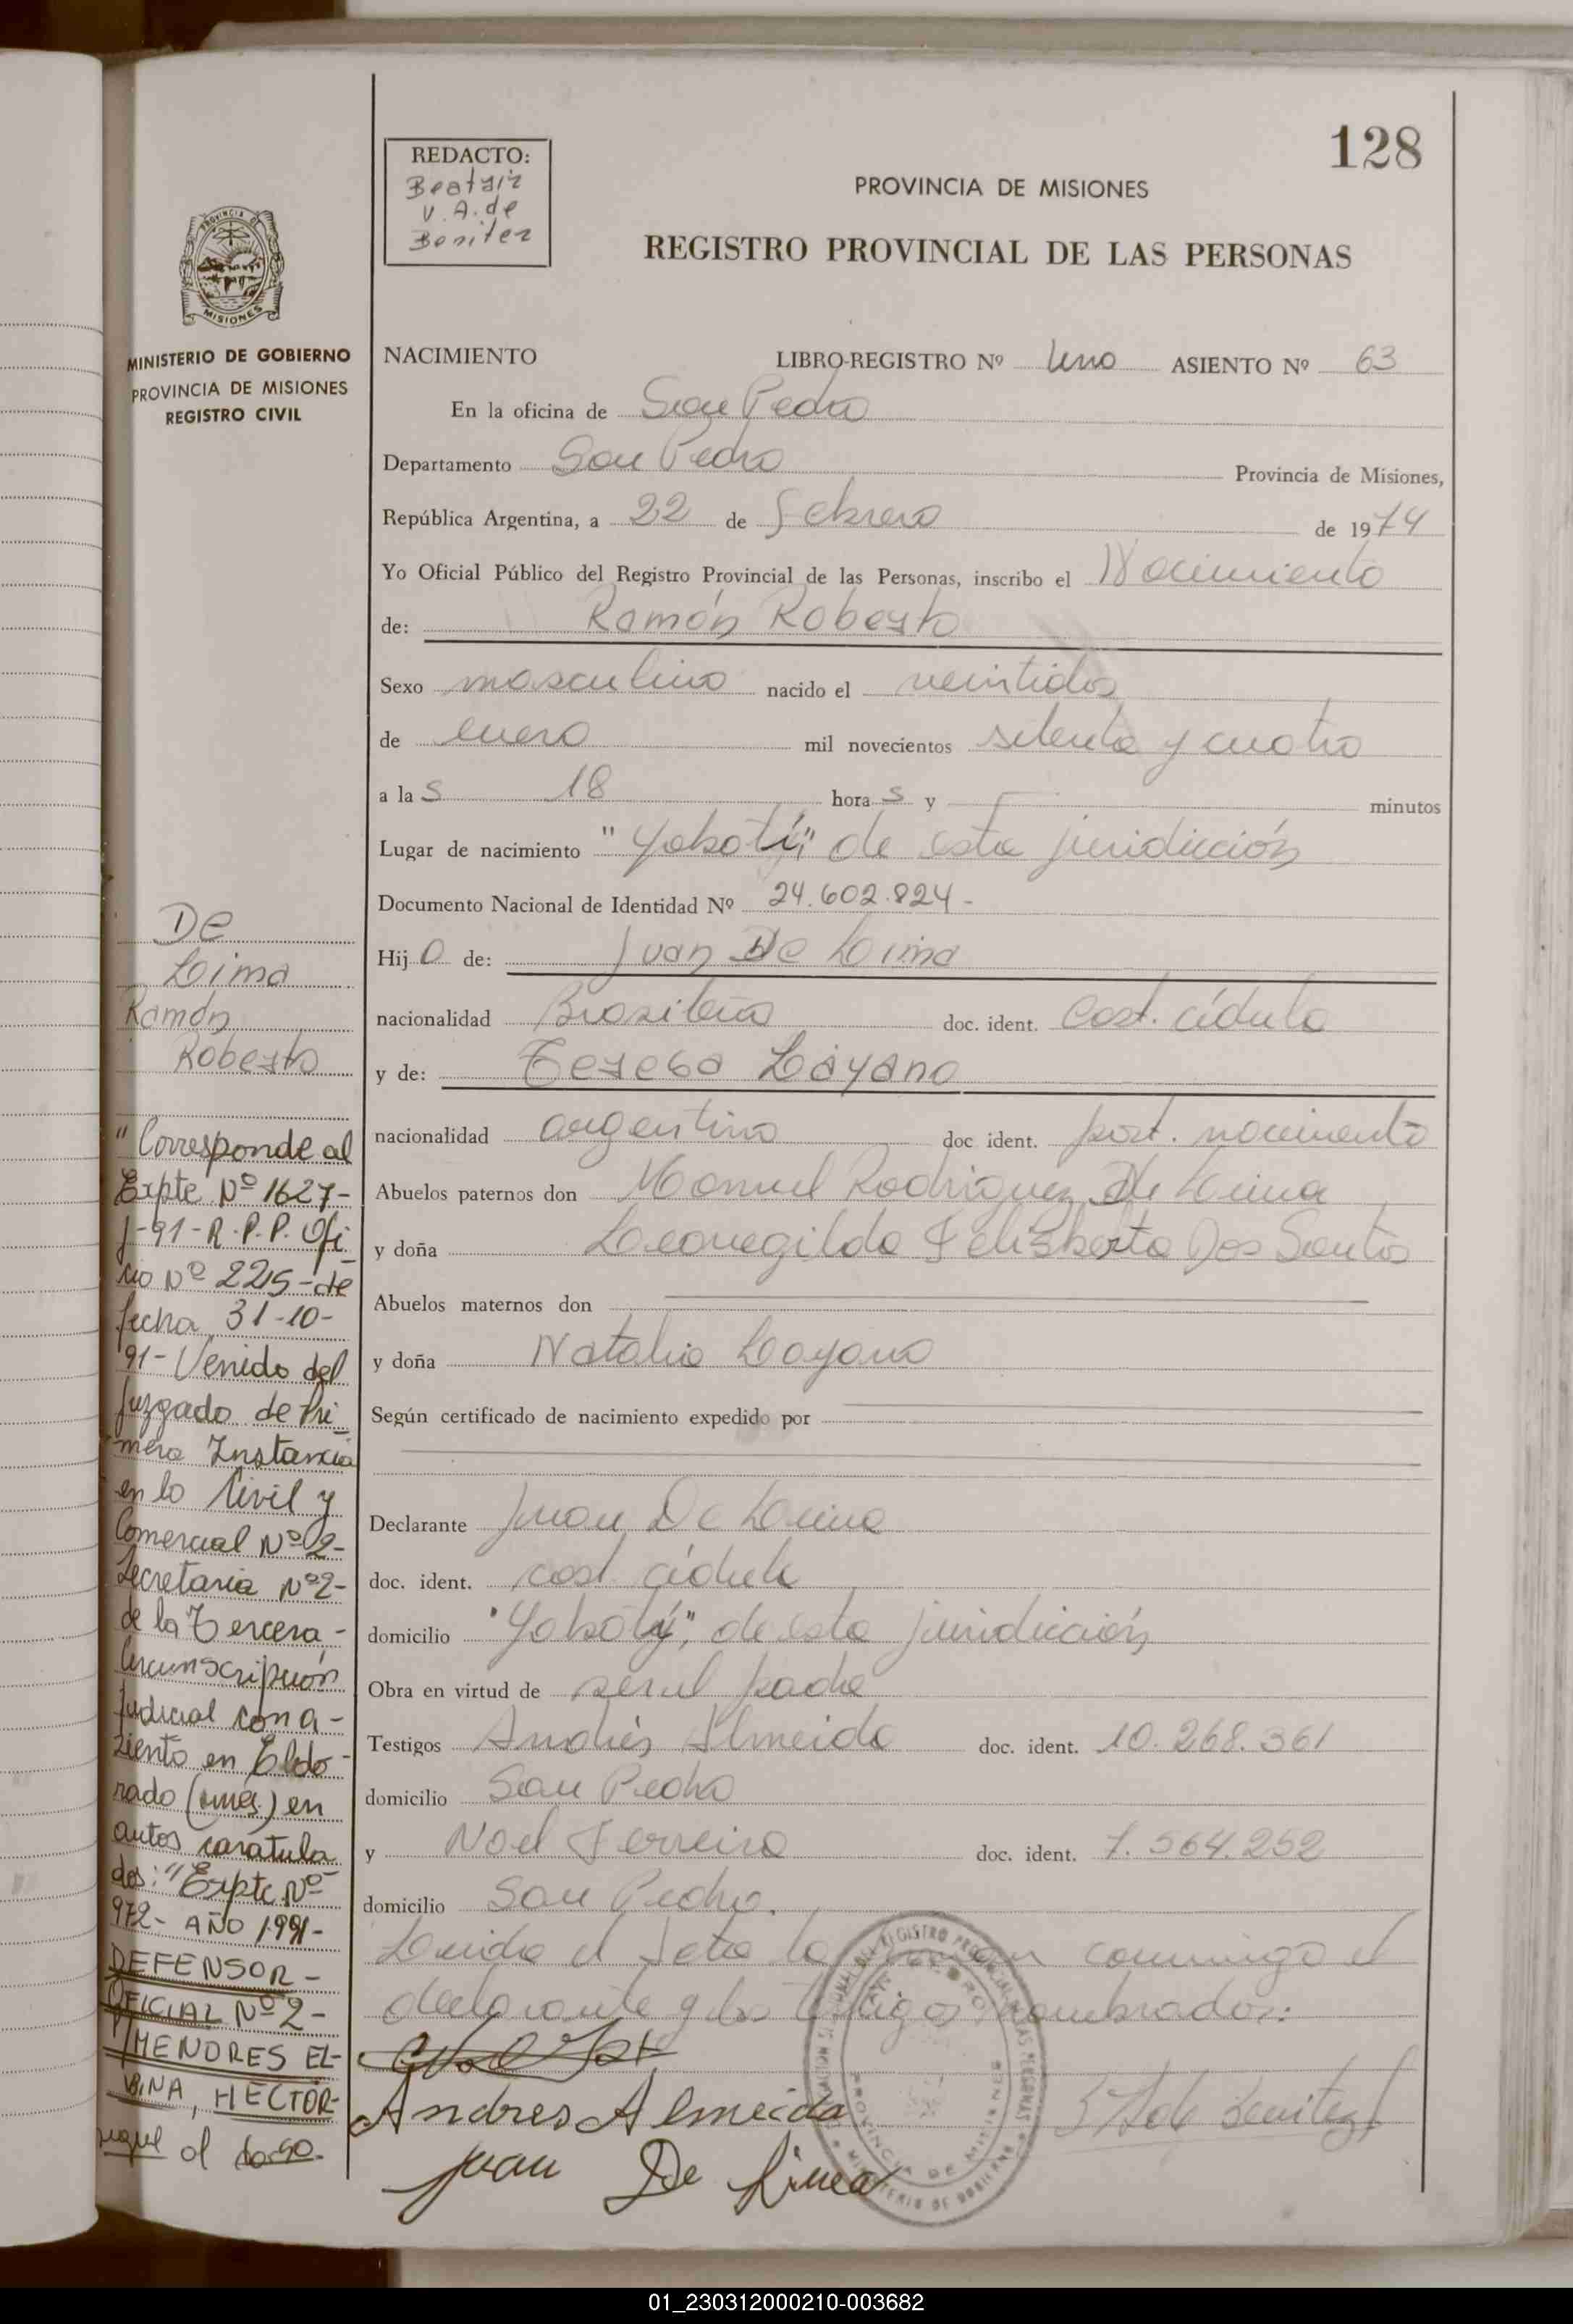 128
REDACTO:
Beatriz
V. A. de
Benitez
PROVINCIA DE MISIONES
REGISTRO PROVINCIAL DE LAS PERSONAS
PROVINCIA DE
MISIONES
MINISTERIO DE GOBIERNO
PROVINCIA DE MISIONES
REGISTRO CIVIL
NACIMIENTO LIBRO-REGISTRO Nº Uno ASIENTO Nº 63
En la oficina de San Pedro
Departamento San Pedro Provincia de Misiones,
República Argentina, a 22 de febrero de 1974
Yo Oficial Público del Registro Provincial de las Personas, inscribo el Nacimiento
de: Ramón Roberto
Sexo masculino nacido el veintidos
de enero mil novecientos setenta y cuatro
a la s 18 hora s y minutos
Lugar de nacimiento "Yabotí" de esta juridicción
Documento Nacional de Identidad Nº 24.602.824-
Hij o de: Juan De Lima
nacionalidad Brasileña doc. ident. Cost. cédula
y de: Teresa Layano
nacionalidad argentina doc ident. part. nacimiento
Abuelos paternos don Manuel Rodriguez De Lima
y doña Leovegilda Felisberta Dos Santos
Abuelos maternos don
y doña Natalia Layano
Según certificado de nacimiento expedido por
Declarante Juan De Lima
doc. ident. cost. cédula
domicilio "Yabotý", de esta juridicción
Obra en virtud de ser el padre
Testigos Andrés Almeida doc. ident. 10.268.361
domicilio San Pedro
y Noel Ferreira doc. ident. 7.564.252
domicilio San Pedro.
Leida el Acta la firman conmigo el
declarante y los testigos nombrados:
Andres Almeida
Juan De Lima
De
Lima
Ramón
Roberto
"Corresponde al
Expte Nº 1627-
J-91-R.P.P. Ofi
cio Nº 2215-de
fecha 31-10-
91- Venido del
Juzgado de Pri
mera Instancia
en lo Civil y
Comercial Nº 2-
Secretaria Nº 2-
de la Tercera-
Circunscripción
Judicial con a-
siento en Eldo-
rado (mnes) en
autos caratula
dos: "Expte Nº
972- AÑO 1991-
DEFENSOR-
OFICIAL Nº 2-
P/MENORES EL-
BINA, HECTOR-
sigue al dorso.
01_230312000210-003682